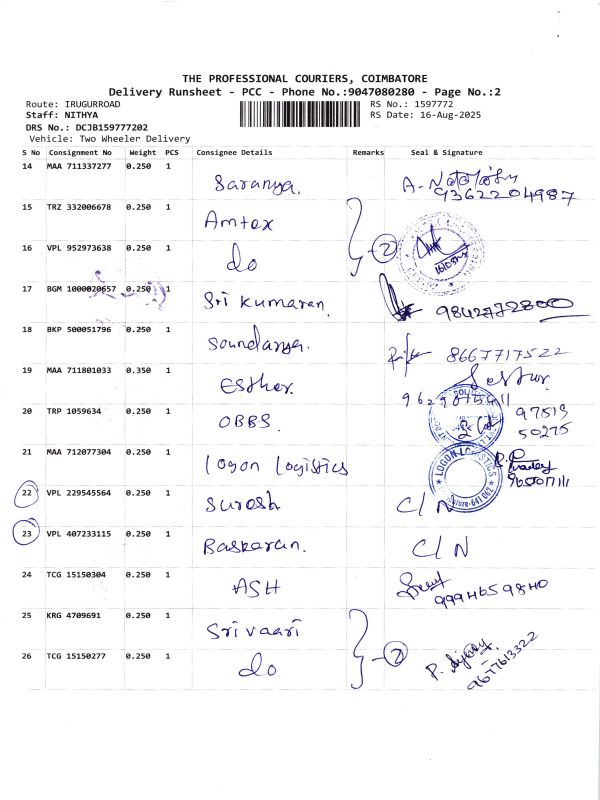 THE PROFESSIONAL COURIERS, COIMBATORE
Delivery Runsheet - PCC - Phone No.:9047080280 - Page No.:2
Route: IRUGURROAD
RS No.: 1597772
Staff: NITHYA
RS Date: 16-Aug-2025
DRS No.: DCJB159777202
Vehicle: Two Wheeler Delivery
S No Consignment No Weight PCS Consignee Details Remarks Seal & Signature
14 MAA 711337277 0.250 1 Saranya. 9362204987
15 TRZ 332006678 0.250 1 Amtex
16 VPL 952973638 0.250 1 do 2
17 BGM 1000020657 0.250 1 Sri Kumaran. 9842772800
18 BKP 500051796 0.250 1 Soundarya. 8667717522
19 MAA 711801033 0.350 1 Esther.
20 TRP 1059634 0.250 1 OBBS. 97513 50275
21 MAA 712077304 0.250 1 Logon Logistics LOGON-LOGISTICS
22 VPL 229545564 0.250 1 Suresh C/N
23 VPL 407233115 0.250 1 Baskaran. C/N
24 TCG 15150304 0.250 1 ASH 9994659840
25 KRG 4709691 0.250 1 Srivaari
26 TCG 15150277 0.250 1 do 2 9677613322